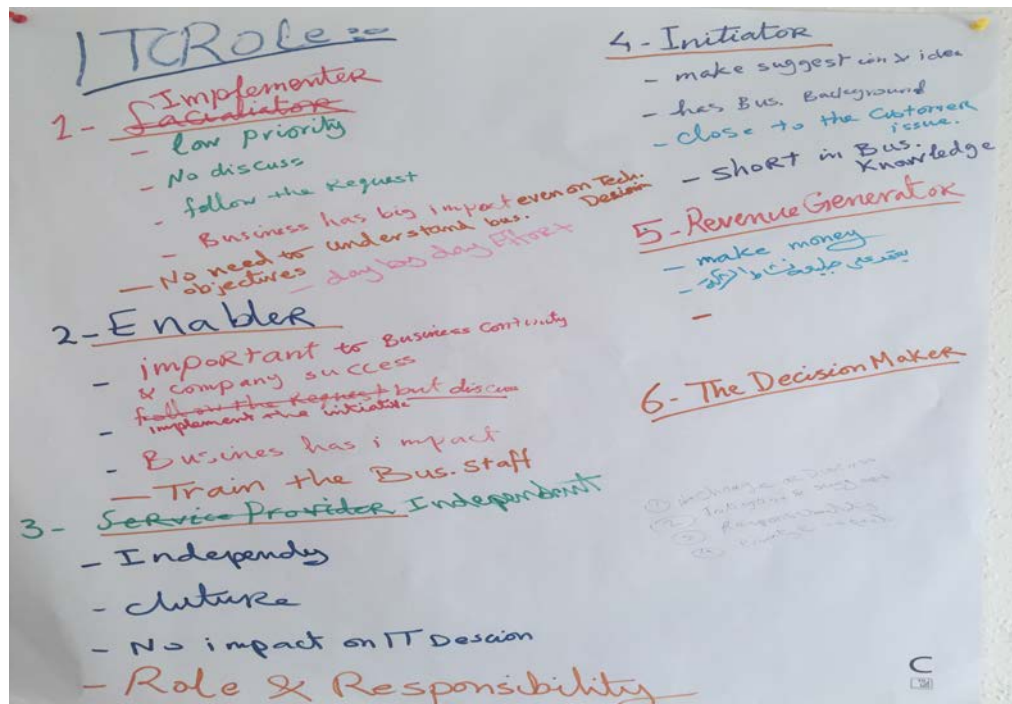 ITCRole:-
Implementer
1- Facialiator
- low priority
- No discuss
- follow the Request
- Business has big impact even on Tech. Desision
- No need to understand bus.
objectives - day by day Effort
2- Enabler
- important to Business Continuity
& company success
- follow the Request but discuss
implement the initiative
- Busines has impact
- Train the Bus. Staff
3- Service Provider Independent
- Independy
- cluture
- No impact on IT Descion
- Role & Responsibility
4- Initiator
- make suggestion & idea
- has Bus. Background
- close to the Customer
issue.
- short in Bus.
Knowledge
5- Revenue Generator
- make money
-
-
6- The Decision Maker
C